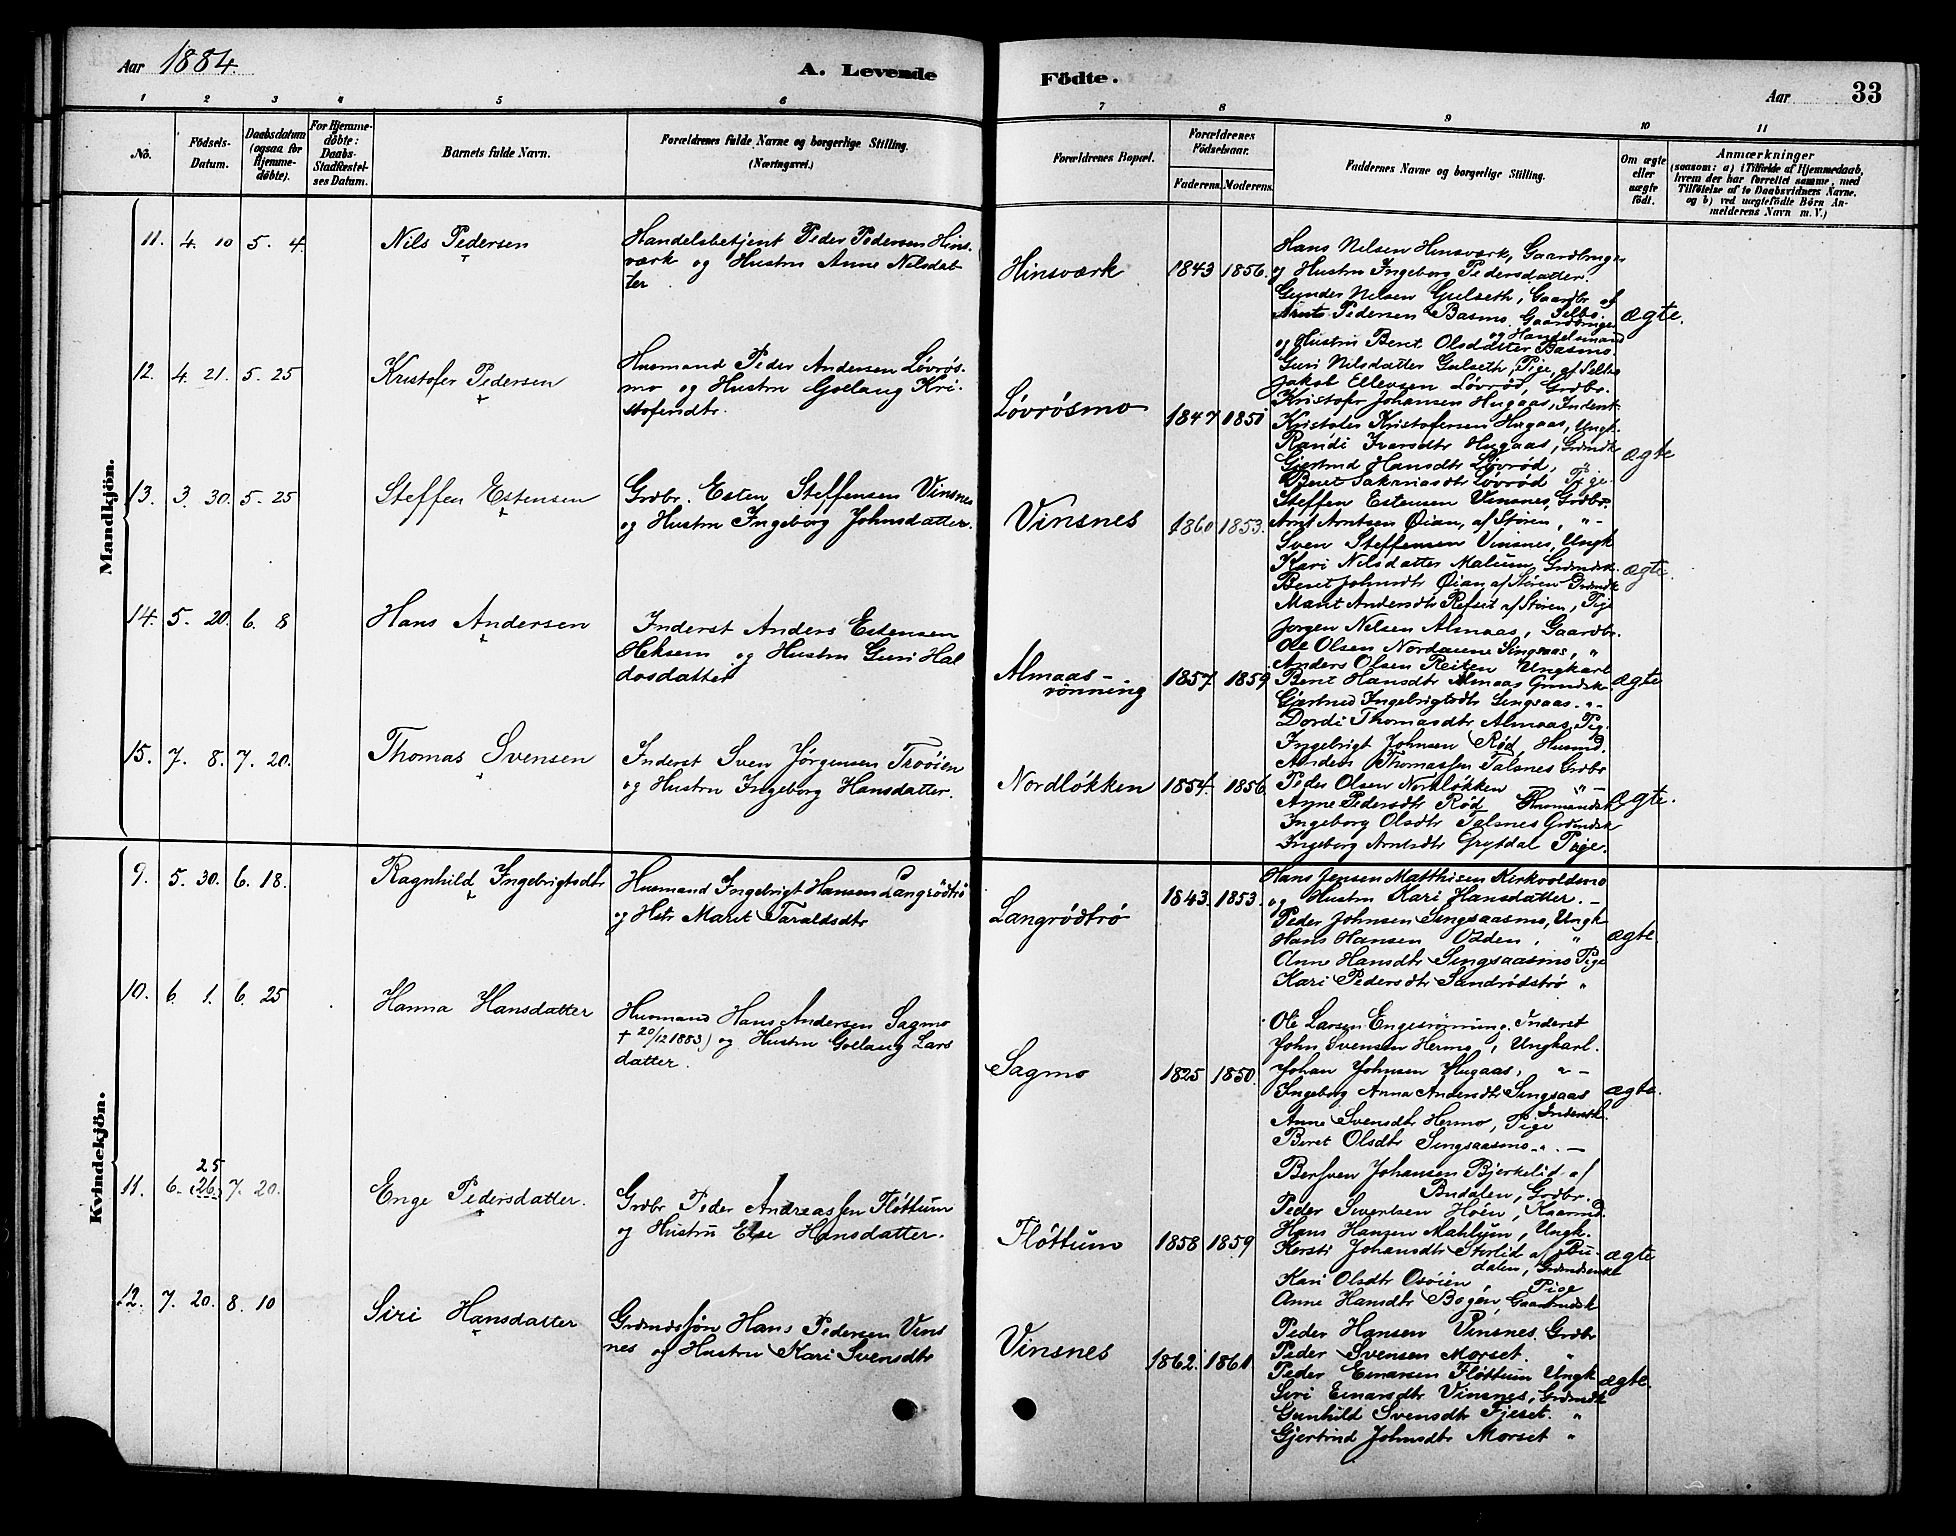 Aar 1884.
A. Levende
Födte.
Aar
33
1 2 3 4 5 6 7 8 9 10 11
No.
Födsels-
Datum.
Daabsdatum
(ogsaa for
Hjemme-
döbte).
For Hjemme-
döbte:
Daabs-
Stadfæstel-
ses Datum.
Barnets fulde Navn.
Forældrenes fulde Navne og borgerlige Stilling.
(Næringsvei.)
Forældrenes Bopæl.
Forældrenes
Födselsaar.
Faderens. Moderens.
Faddernes Navne og borgerlige Stilling.
Om ægte
eller
uægte
födt.
Anmærkninger
(saasom: a) i Tilfælde af Hjemmedaab,
hvem der har forrettet samme, med
Tilföielse af to Daabsvidners Navne.
og b) ved uægtefödte Börn An-
melderens Navn m. V.)
Mandkjön.
11. 4. 10 5. 4. Nils Pedersen
Handelsbetjent Peder Pedersen Hins-
værk og Hustru Anne Nilsdat-
ter
Hinsværk 1843 1856.
Hans Nilsen Hinsværk, Gaardbruger
og Hustru Ingeborg Pedersdatter.
Gunder Nilsen Gulseth, Gaardbr. af
Selbo.
Arnt Pedersen Basmo. Gaardbruger
og Handelsmand
og Hustru Beret Olsdatter Basmo.
Guri Nilsdatter Gulseth, Pige, af Selbo
ægte.
12. 4. 21. 5. 25 Kristofer Pedersen
Husmand Peder Andersen Løvrøs-
mo og Hustru Gollaug Kri-
stofersdtr.
Løvrøsmo 1847 1851
Jakob Ellevsen Løvrød, Grdbr.
Kristofer Johansen Hugaas, Inderst
Kristofer Kristofersen Hugaas, Ungk.
Randi Ivarsdtr Hugaas, Grdmdsk
Gjertrud Hansdtr Løvrød, "
Beret Sakariasdtr Løvrød Pige.
ægte
13. 3. 30. 5. 25 Steffen Estensen
Grdbr. Esten Steffensen Vinsnes
og Hustru Ingeborg Johnsdatter.
Vinsnes 1860 1853.
Steffen Estensen Vinsnes, Grdbr.
Arnt Arntsen Øian, af Støren, " -
Sven Steffensen Vinsnes, Ungk
Kari Nilsdatter Malum, Grdmdsk.
Beret Johnsdtr Øian af Støren Grdmdsk
Marit Andersdtr Refset af Støren, Pige
ægte.
14. 5. 20. 6. 8 Hans Andersen
Inderst Anders Estensen
Heksem og Hustru Guri Hal
dosdatter
Almaas-
rönning 1857. 1859.
Jørgen Nilsen Almaas, Gaardbr.
Ole Olsen Nordaune Singsaas, "
Anders Olsen Reiten Ungkarl
Beret Hansdtr Almaas Grdmdsk.
Gjertrud Ingebrigtsdtr Singsaas. "-
Dordi Thomasdtr Almaas, Pig.
ægte
15. 7. 8. 7. 20. Thomas Svensen
Inderst Sven Jørgensen Troøien
og Hustru Ingeborg Hansdatter.
Nordløkken 1854. 1856.
Ingebrigt Johnsen Rød, Husmd.
Anders Thomassen Talsnes Grdbr
Peder Olsen Nordløkken " -
Anne Pedersdtr Rød Husmandsk
Ingeborg Olsdtr Talsnes Grdmdsk
Ingeborg Arntsdtr Grytdal Pige.
ægte.
Kvindekjön.
9. 5. 30. 6. 18. Ragnhild Ingebrigtsdtr
Husmand Ingebrigt Hansen Langrödtrö
og Hstr Marit Taraldsdtr
Langrödtrö 1843. 1853.
Hans Jensen Matthisen Kirkvoldsmo
og Hustru Kari Hansdatter. -
Peder Johnsen Singsaasmo, Ungk
Hans Hansen Volden, "
Anne Hansdtr Singsaasmo Pige
Kari Pedersdtr Sandrödströ "
ægte.
10. 6. 1. 6. 25 Hanna Hansdatter
Husmand Hans Andersen Sagmo
† 20/12 1883) og Hustru Gollaug Lars
datter.
Sagmo 1825 1850.
Ole Larsen Engesrönning, Inderst
John Svensen Hermo, Ungkarl.
Johan Johnsen Hugaas, " -
Ingeborg Anna Andersdtr Singsaas
Inderstk.
Anne Svensdtr Hermo, Pige
Beret Olsdtr Singsaasmo " . -
ægte.
11. 6. 25 (26.) 7. 20. Enge Pedersdatter.
Grdbr Peder Andreassen Fløttum
og Hustru Else Hansdatter.
Fløttum 1858 1859
Bersven Johansen Bjerkelid af
Budalen, Grdbr.
Peder Sivertsen Hoen, Kaarmd.
Hans Hansen Mahlum, Ungk.
Kersti Johansdtr Storlid af Bu-
dalen,
Kari Olsdtr Osøien, Pige
Anne Hansdtr Bogen, Gaardmdsk
ægte
12. 7. 20. 8. 10 Siri Hansdatter
Grdmdssøn Hans Pedersen Vins
nes og Hustru Kari Svensdtr
Vinsnes 1862. 1861.
Peder Hansen Vinsnes. Grdbr
Peder Svensen Morset. "
Peder Einarsen Fløttum Ungk
Siri Einarsdtr Vinsnes, Grdmdsk
Gunhild Svensdtr Fjeset. "
Gjertrud Johnsdtr Morset "
ægte.